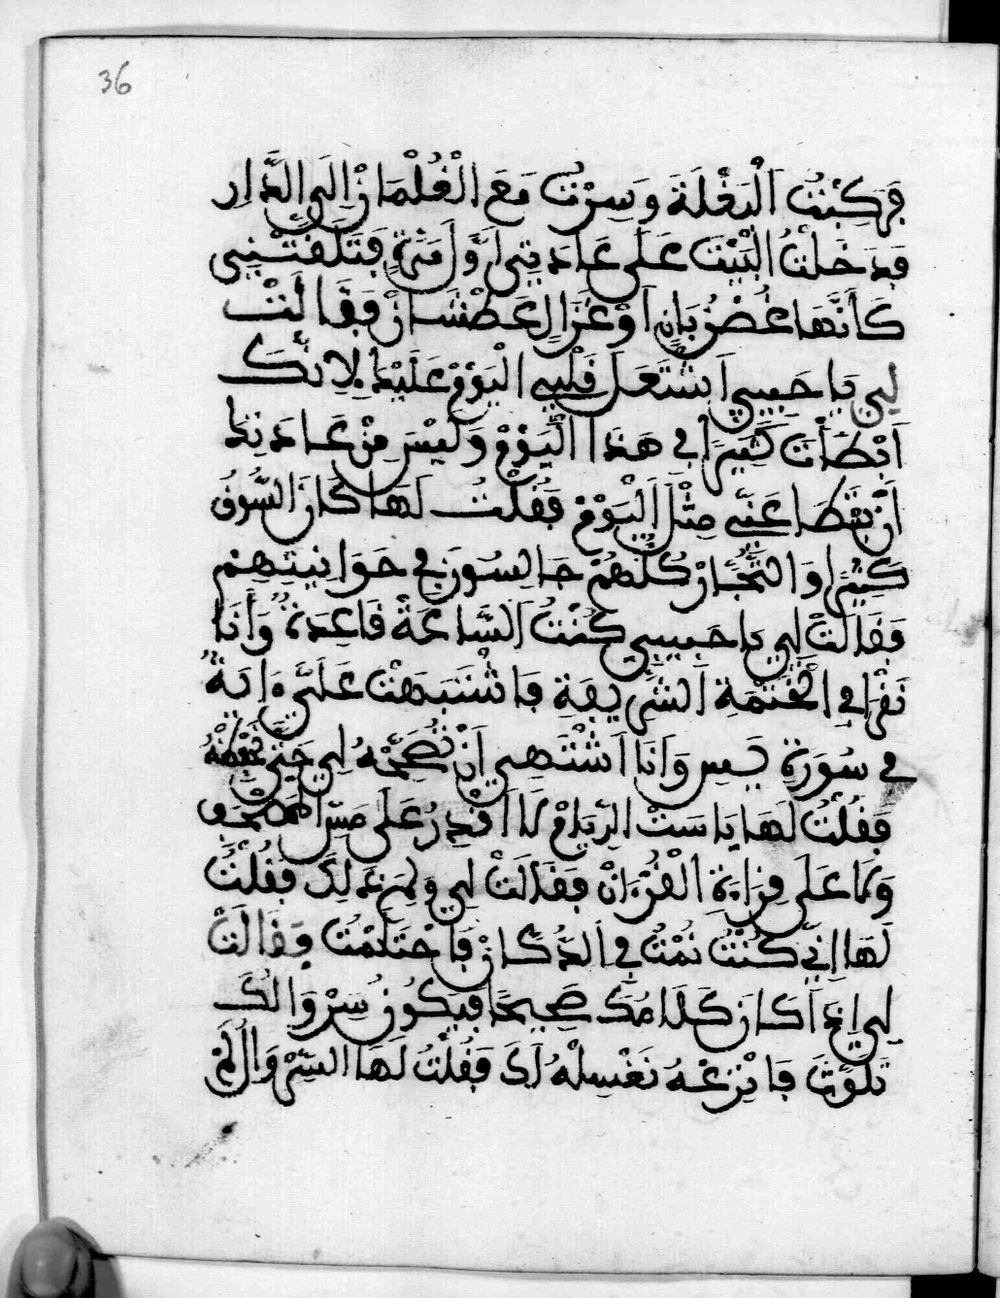 36
فَرَكِبْتُ الْبَغْلَةَ وَسِرْتُ مَعَ الْغُلْمَانْ إِلَى الدَّارِ
فَدَخَلْتُ الْبَيْتَ عَلَى عَادَتِي أَوَّلَ مَرَّةٍ فَتَلَقَّتْنِي
كَأَنَّهَا غُصْنُ بَانٍ اَوْ غَزَالٍ عَطْشَانْ فَقَالَتْ
لِي يَا حَبِيبِي اَشْتَعَلَ قَلْبِي الْيَوْمْ عَلَيْكَ لِانَّكَ
اَبْطَأْتَ كَثِيرًا فِي هَذَا الْيَوْمْ وَلَيْسَ مِنْ عَادَتِكَ
اَنْ تَبْطَا عَنِّي مِثْلَ الْيَوْمْ فَقُلْتُ لَهَا كَانَ السُّوقُ
كَثِيرًا وَالتُّجَّارْ كُلُّهُمْ جَالِسُونَ فِي حَوَانِيتِهِمْ
فَقَالَتْ لِي يَا حَبِيبِي كُنْتُ السَّاعَةَ قَاعِدَة وَأَنَا
نَقْرَا فِي الْخَتْمَةِ الشَّرِيفَةِ فَاشْتَبَهَتْ عَلَيَّ ءَايَةٌ
فِي سُورَةِ يَسِ وَانَا اَشْتَهِي اَنْ تُصَحِّحَهُ لِي حَتَّى نَحْفَظَهُ
فَقُلْتُ لَهَا يَا سَتْ الْمِلَاحْ لَا اَقْدِرُ عَلَى مَسِّ الْمُصْحَفِ
وَلَا عَلَى قِرَاءَةِ الْقُرْءَانْ فَقَالَتْ لِي وَلِمَ ذَلِكَ فَقُلْتُ
لَهَا اِنِّي كُنْتُ نُمْتُ فِي الدُّكَانْ فَاحْتَلَمْتُ فَقَالَتْ
لِي اِذَا كَانَ كَلَامُكَ صَحِيحًا فَيَكُونُ سَرْوَالُكَ
تَلَوَّثَ فَانْزِعْهُ نَغْسِلْهُ لَكَ فَقُلْتُ لَهَا السِّرْوَالْ لَمْ